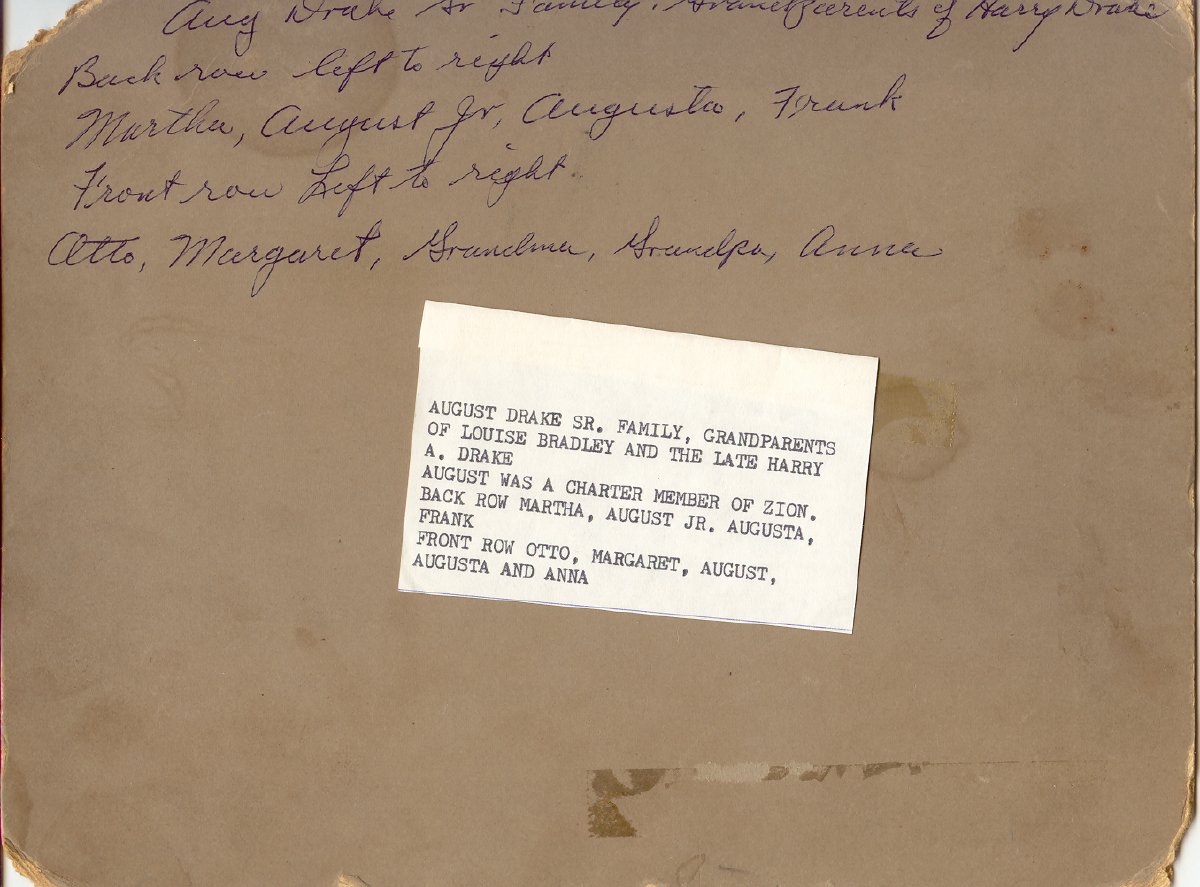 Aug Drake Sr Family. Grandparents of Harry Drake
Back row left to right
Martha, August Jr, Augusta, Frank
Front row Left to right
Otto, Margaret, Grandma, Grandpa, Anna
AUGUST DRAKE SR. FAMILY, GRANDPARENTS
OF LOUISE BRADLEY AND THE LATE HARRY
A. DRAKE
AUGUST WAS A CHARTER MEMBER OF ZION.
BACK ROW MARTHA, AUGUST JR. AUGUSTA,
FRANK
FRONT ROW OTTO, MARGARET, AUGUST,
AUGUSTA AND ANNA